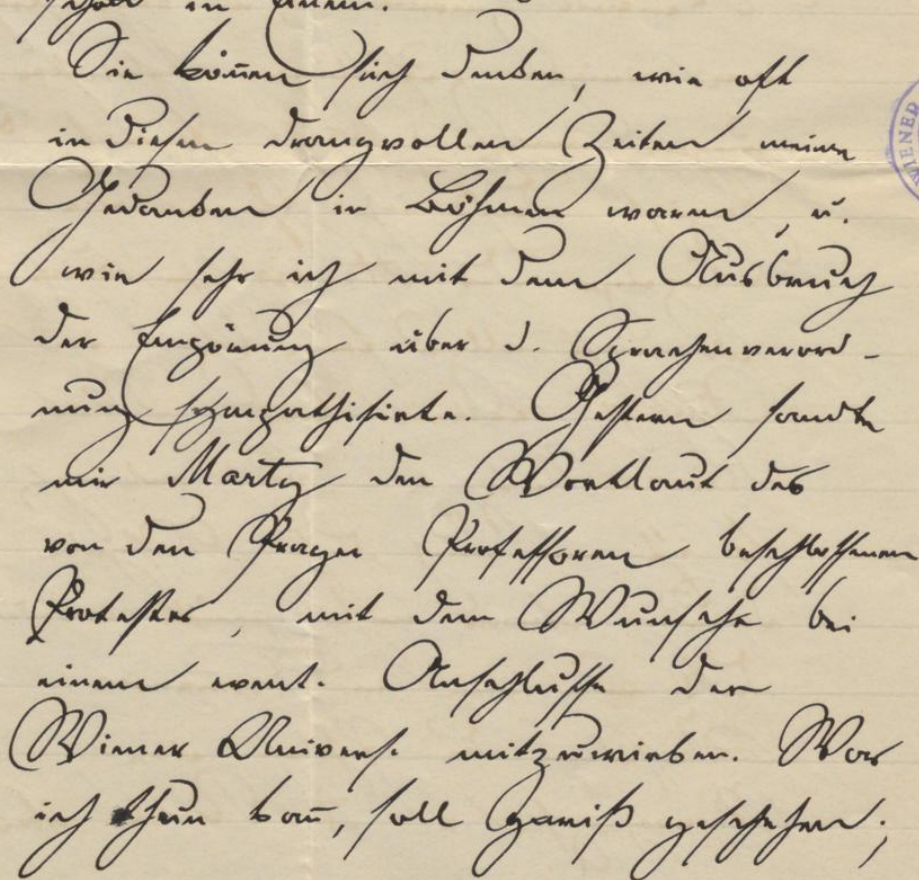 schaft in Einem.
Sie kön̄en sich denken, wie oft
in diesen drangvollen Zeiten meine
Gedanken in Böhmen waren, u.
wie sehr ich mit dem Ausbruch
der Empörung über d. Sprachenverord-
nung sympathisirte. Gestern sandte
mir Marty den Wortlaut des
von den Prager Professoren beschlossenen
Protestes, mit dem Wunsche bei
einem event. Anschlusse der
Wiener Univers. mitzuwirken. Was
ich thun kan̄, soll gewiß geschehen;
WIENER